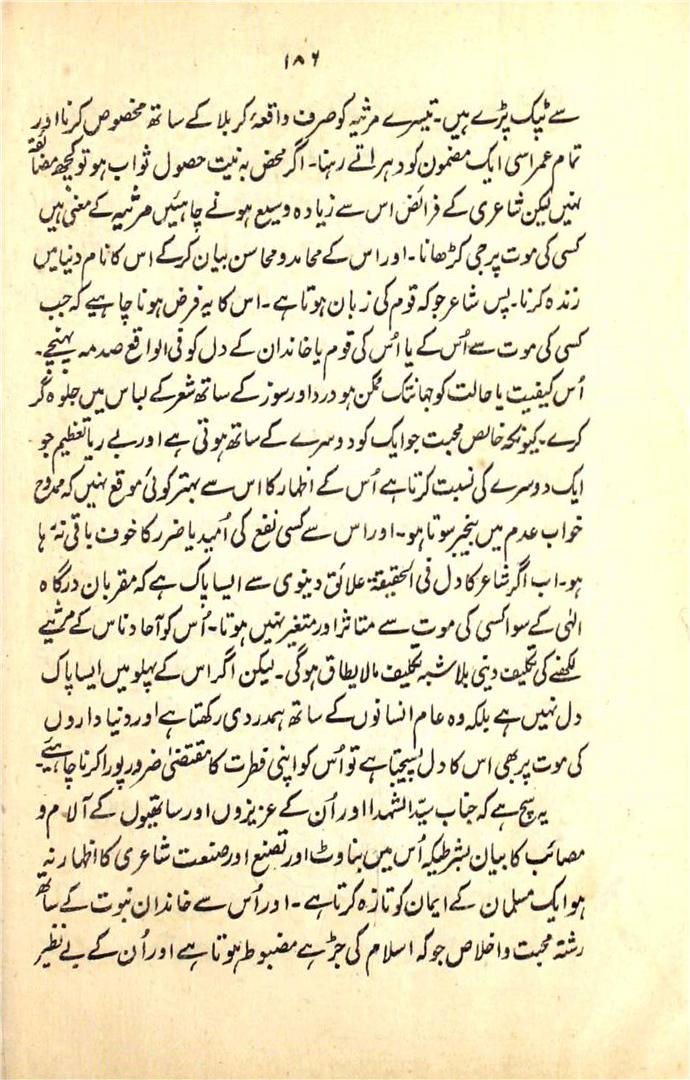 ۱۸۶
سے ٹپک پڑے ہیں۔ تیسرے مرثیہ کو صرف واقعۂ کربلا کے ساتھ مخصوص کرنا اور
تمام عمر اسی ایک مضمون کو دہراتے رہنا۔ اگر محض بہ نیت حصول ثواب ہو تو کچھ مضائقہ
نہیں لیکن شاعری کے فرائض اس سے زیادہ وسیع ہونے چاہئیں مرثیہ کے معنی ہیں
کسی کی موت پر جی کڑھانا۔ اور اس کے محامد و محاسن بیان کرکے اس کا نام دنیا میں
زندہ کرنا۔ پس شاعر جو کہ قوم کی زبان ہوتا ہے۔ اس کا یہ فرض ہونا چاہیے کہ جب
کسی کی موت سے اُس کے یا اُس کی قوم یا خاندان کے دل کو فی الواقع صدمہ پہنچے۔
اُس کیفیت یا حالت کو جہانتک ممکن ہو درد اور سوز کے ساتھ شعر کے لباس میں جلوہ گر
کرے۔ کیونکہ خالص محبت جو ایک کو دوسرے کے ساتھ ہوتی ہے اور بے ریا تعظیم جو
ایک دوسرے کی نسبت کرتا ہے اُس کے اظہار کا اس سے بہتر کوئی موقع نہیں کہ ممدوح
خواب عدم میں بیخبر سوتا ہو۔ اور اس سے کسی نفع کی اُمید یا ضرر کا خوف باقی نہ رہا
ہو۔ اب اگر شاعر کا دل فی الحقیقۃ علائق دینوی سے ایسا پاک ہے کہ مقربان درگاہ
الٰہی کے سوا کسی کی موت سے متاثر اور متغیر نہیں ہوتا۔ اُس کو آحاد ناس کے مرثیے
لکھنے کی تکلیف دینی بلا شبہ تکلیف مالا یطاق ہوگی۔ لیکن اگر اس کے پہلو میں ایسا پاک
دل نہیں ہے بلکہ وہ عام انسانوں کے ساتھ ہمدردی رکھتا ہے اور دنیا داروں
کی موت پر بھی اس کا دل پسیجتا ہے تو اُس کو اپنی فطرت کا مقتضیٰ ضرور پورا کرنا چاہئیے۔
یہ سچ ہے کہ جناب سیّد الشہدا اور اُن کے عزیزوں اور ساتھیوں کے آلام و
مصائب کا بیان بشرطیکہ اُس میں بناوٹ اور تصنع اور صنعت شاعری کا اظہار نہ
ہو ایک مسلمان کے ایمان کو تازہ کرتا ہے۔ اور اُس سے خاندان نبوت کے ساتھ
رشتہ محبت و اخلاص جو کہ اسلام کی جڑ ہے مضبوط ہوتا ہے اور اُن کے بے نظیر